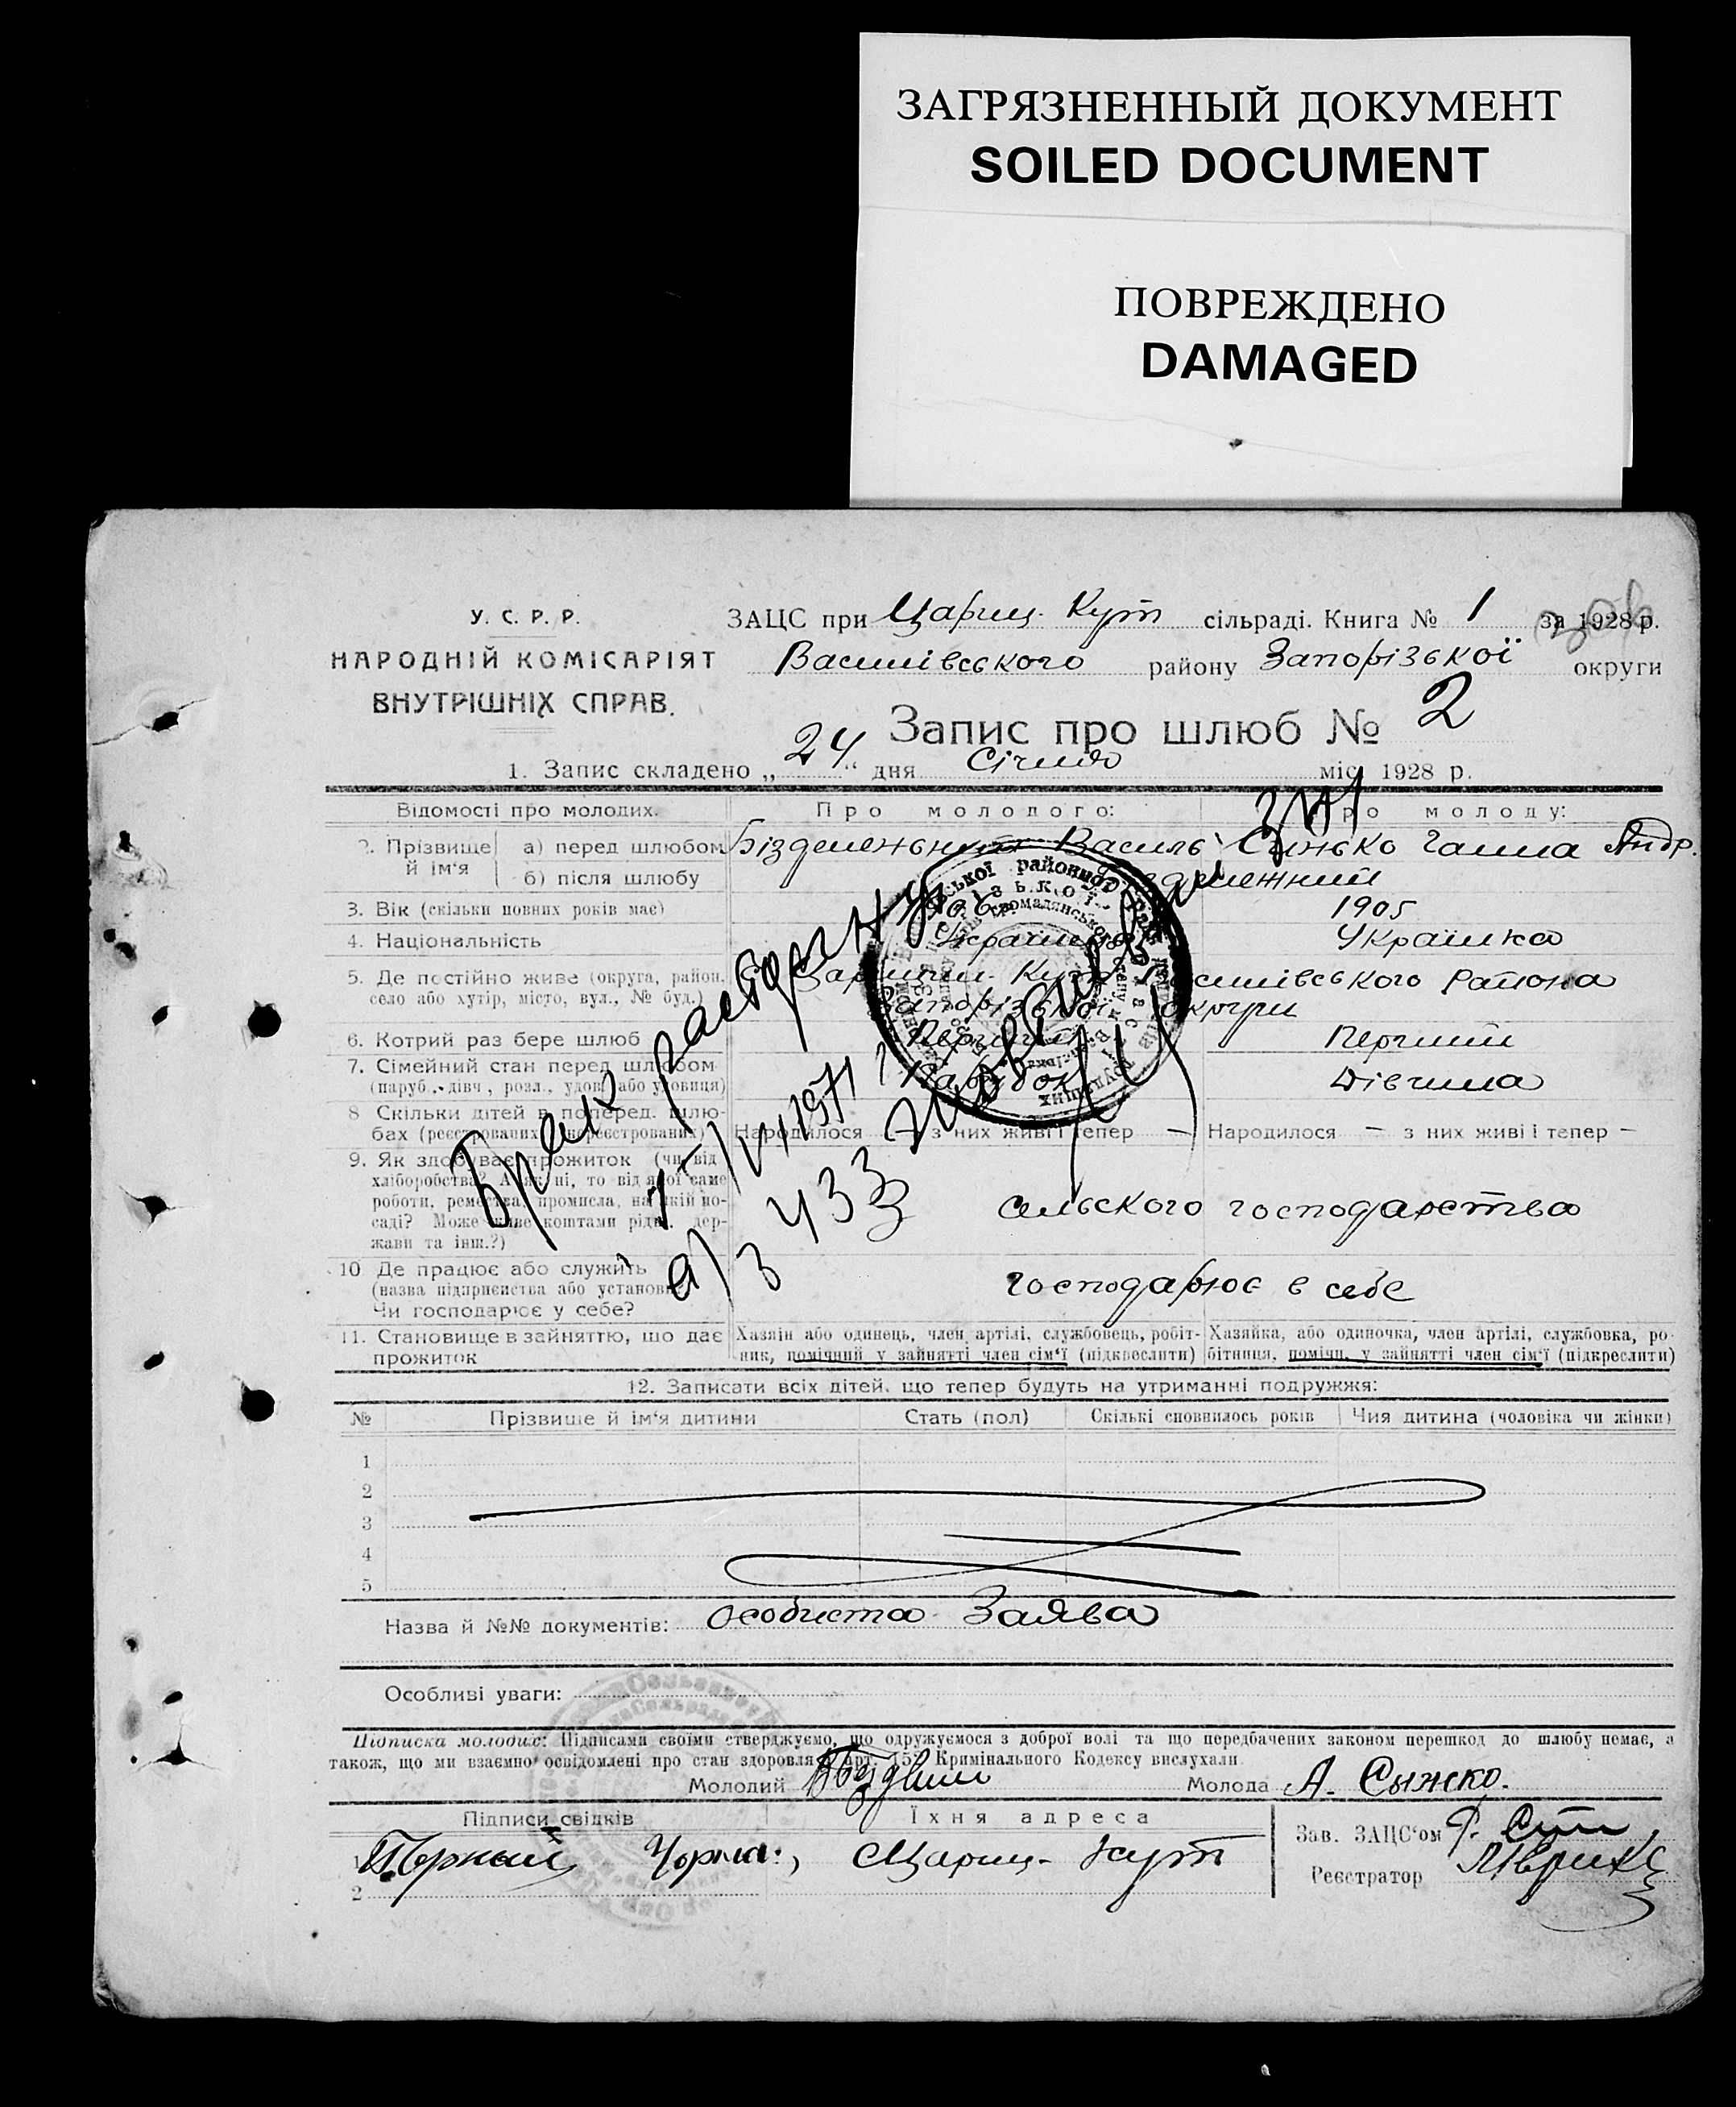 ЗАГРЯЗНЕННЫЙ ДОКУМЕНТ
SOILED DOCUMENT
ПОВРЕЖДЕНО
DAMAGED
У. С. Р. Р.
НАРОДНІЙ КОМІСАРІЯТ
ВНУТРІШНІХ СПРАВ.
ЗАЦС при Цариц. Кут сільраді. Книга № 1 за 1928 р.
Василівського району Запорізької округи
Запис про шлюб № 2
1. Запис складено „ 24 “ дня Січня міс. 1928 р.
Відомості про молодих. Про молодого: Про молоду:
2. Прізвище й ім‘я а) перед шлюбом Василь Ганна Андр.
б) після шлюбу
3. Вік (скільки повних років має) 1905
4. Національність Українка
5. Де постійно живе (округа, район, село або хутір, місто, вул., № буд.) Кут Василівського Района
Запорізької округи
6. Котрий раз бере шлюб Перший Перший
7. Сімейний стан перед шлюбом (паруб., дівч., розл., удов. або удовиця) Парубок Дівчина
8 Скільки дітей в поперед. шлюбах (реєстрованих нереєстрованих) Народилося — з них живі і тепер — Народилося — з них живі і тепер —
9. Як здобуває прожиток (чи від
хліборобства? А як ні, то від якої саме
роботи, ремества, промисла, на якій по-
саді? Може живе коштами рідн., дер-
жави та інш.?)
сельского господарства
10 Де працює або служить
(назва підприємства або установи)
Чи господарює у себе?
господарює в себе
11. Становище в зайняттю, що дає прожиток
Хазяін або одинець, член артілі, службовець, робіт-
ник, помічний у зайнятті член сім‘ї (підкреслити)
Хазяйка, або одиночка, член артілі, службовка, ро-
бітниця, помічн. у зайнятті член сім‘ї (підкреслити)
Брак расторгнут
1971
а/з 433
12. Записати всіх дітей, що тепер будуть на утриманні подружжя:
№ Прізвище й ім‘я дитини Стать (пол) Скількі сповнилось років Чия дитина (чоловіка чи жінки)
1
2
3
4
5
Назва й №№ документів: особиста Заява
Особливі уваги:
Підписка молодих: Підписами своїми стверджуємо, що одружуємося з доброї волі та що передбачених законом перешкод до шлюбу немає, а
також, що ми взаємно освідомлені про стан здоровля Арт. 15 Кримінального Кодексу вислухали.
Молодий Молода А.
Підписи свідків Їхня адреса
1 Цариц- Кут
2
Зав. ЗАЦС‘ом
Реєстратор